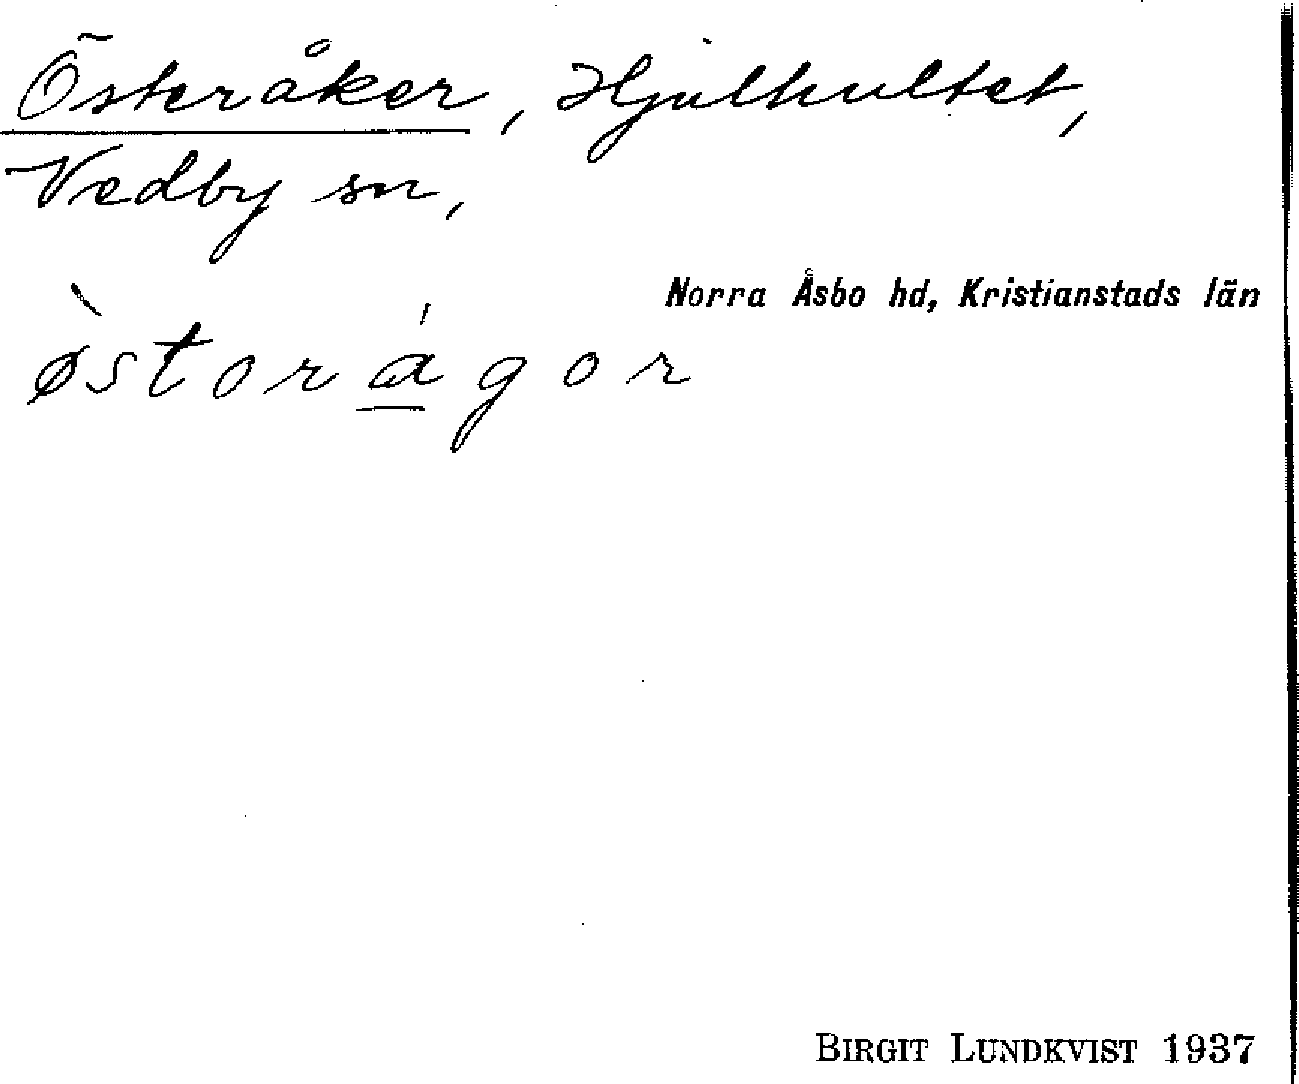 Österåker, Hjulhultet,
Vedby sn,
Norra Åsbo hd, Kristianstads län
ø̀storágor
BIRGIT LUNDKVIST 1937